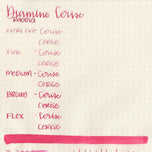 Diamine Cerise
Rhodia
extra fine Cerise
cerise
fine - Cerise
cerise
medium - Cerise
cerise
BROAD - Cerise
cerise
FLEX - Cerise
cerise